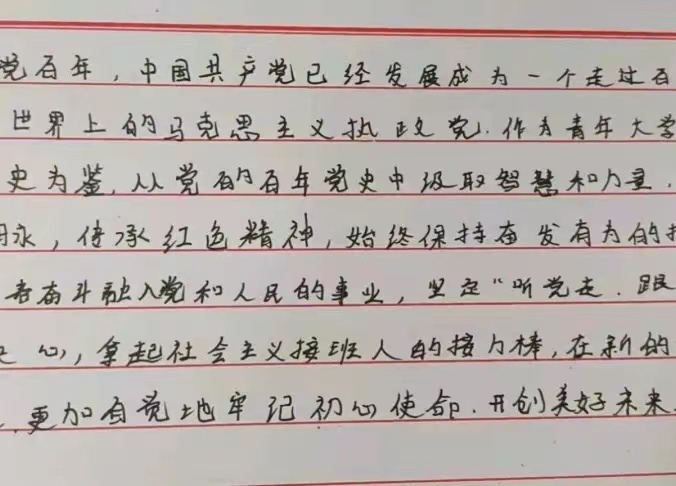 党百年，中国共产党已经发展成为一个走过百
世界上的马克思主义执政党.作为青年大学
史为鉴，从党的百年党史中级取智慧和力量，
，传承红色精神，始终保持奋发有为的
奋斗融入党和人民的事业，坚定“听党走.跟
心，拿起社会主义接班人的接力棒，在新的
，更加自觉地牢记初心使命.开创美好未来.